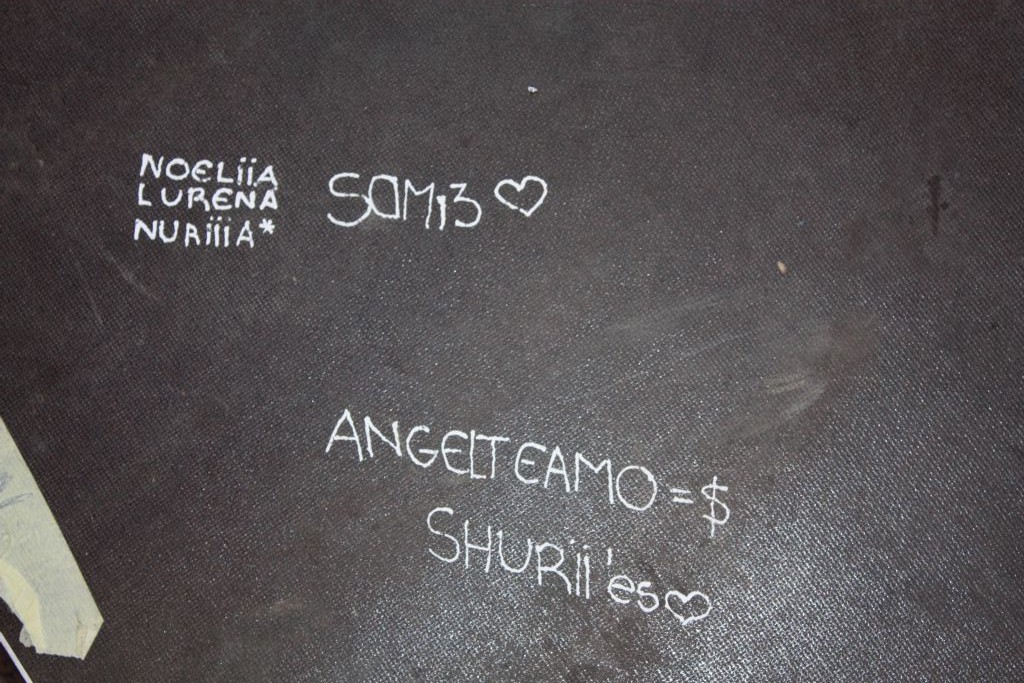 NOELiiA
LURENA
NURiiiA*
SAMi3 ♡
ANGELTEAMO =$
SHURii'es♡